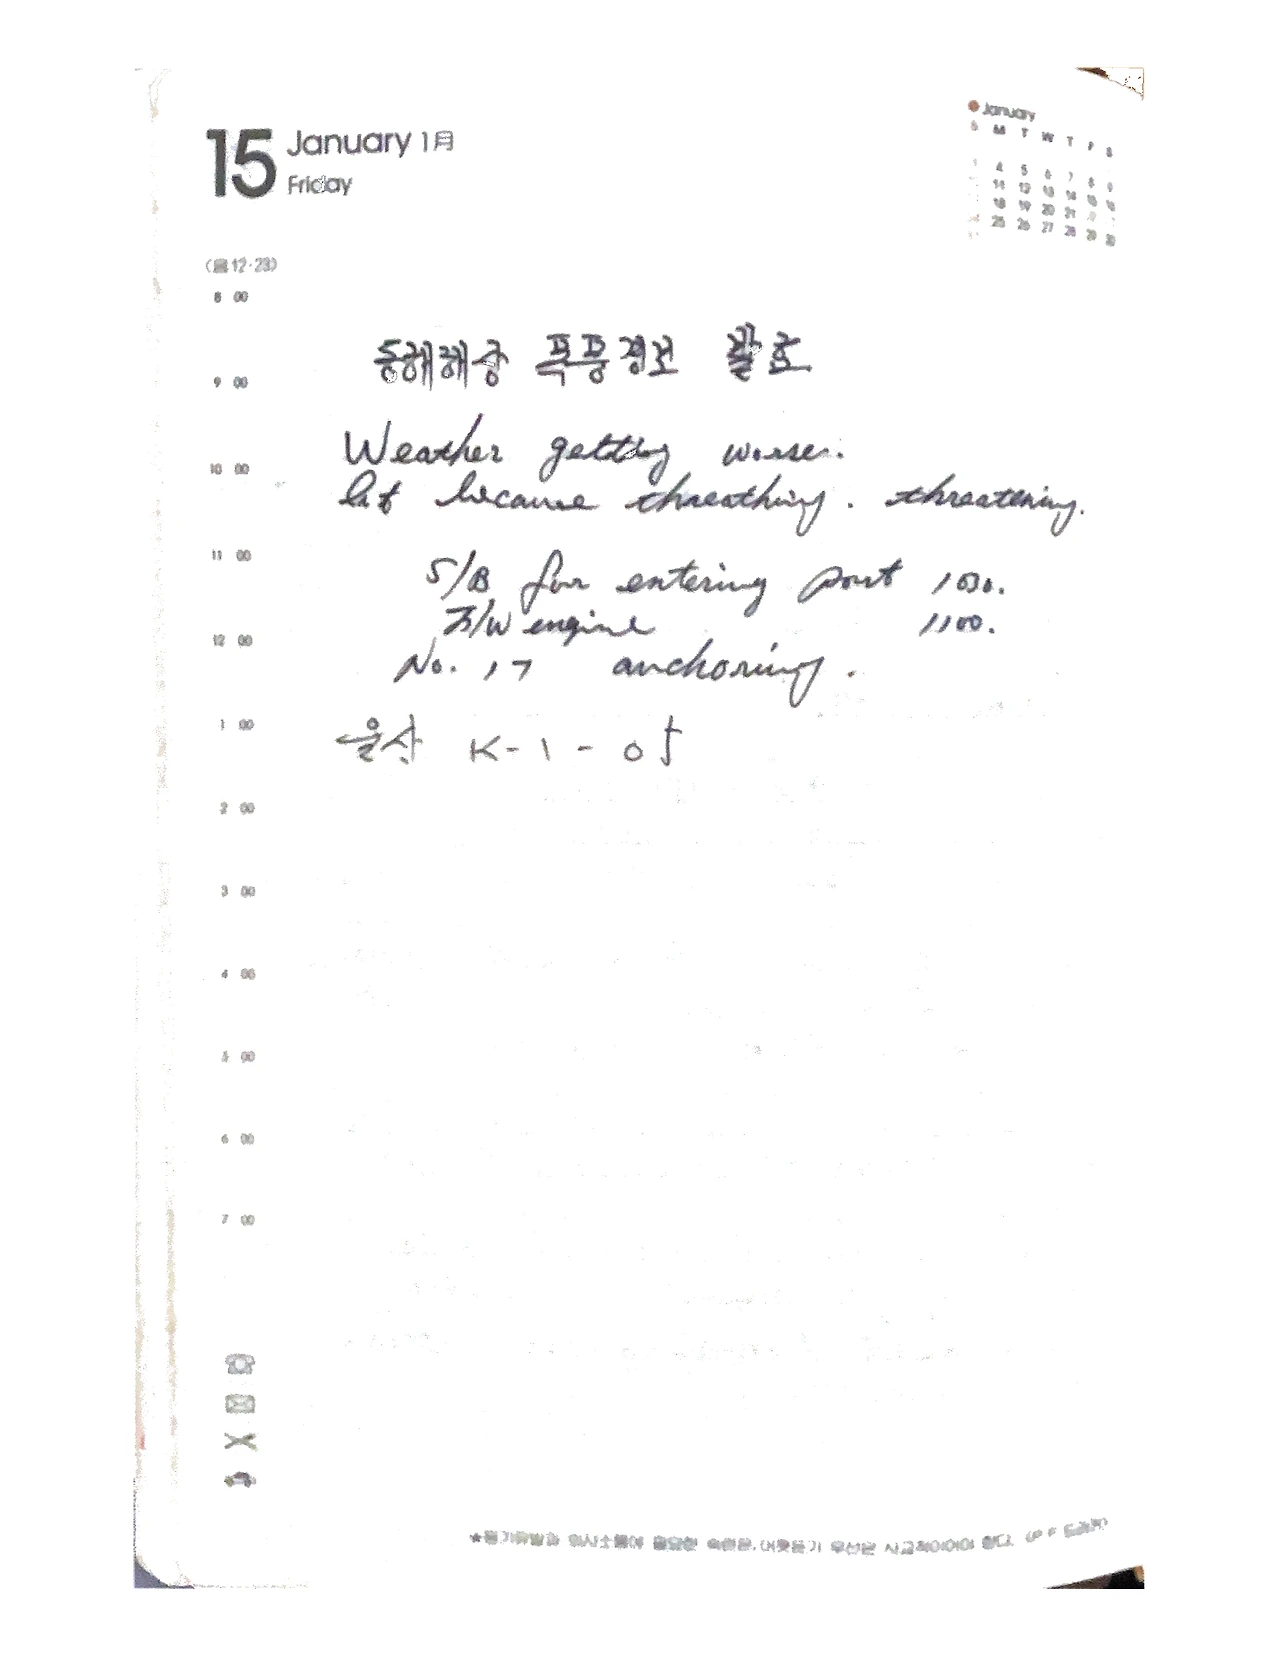 15 January 1月
Friday
January
S M T W T F S
4 5 6 7 8 9
11 12 13 14 15 16
18 19 20 21
25 26 27 28 29 30
(음12·23)
8 00
동해해상 폭풍경보 발효
9 00
Weather getting worse.
10 00
let because threathing. threatening.
11 00
S/B for entering port 1030.
F/W engine 1100.
12 00
No. 17 anchoring.
1 00
울산 K-1-05
2 00
3 00
4 00
5 00
6 00
7 00